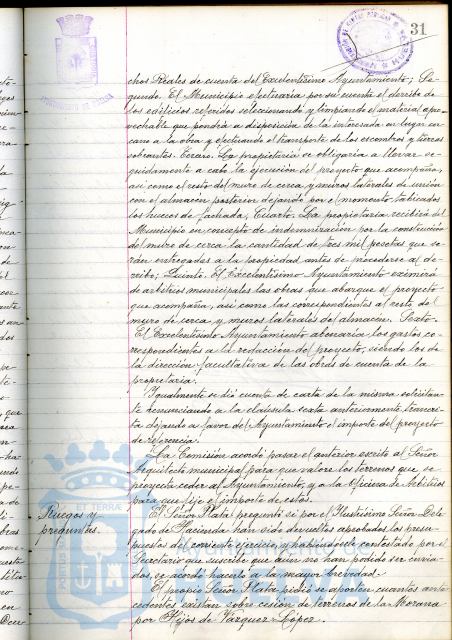 31
chos Reales de cuenta del Excelentísimo Ayuntamiento; Se-
gundo. El Municipio efectuaría por su cuenta el derribo de
los edificios referidos seleccionando y limpiando el material apro-
vechable que pondrá a disposición de la interesada en lugar cer-
cano a la obra y efectuando el transporte de los escombros y tierras
sobrantes. Tercero. La propietaria se obligaría a llevar se-
guidamente a cabo la ejecución del proyecto que acompaña,
así como el resto del muro de cerca y muros laterales de unión
con el almacén posterior dejando por el momento tabicados
los huecos de fachada, Cuarto. La propietaria recibirá del
Municipio en concepto de indemnización por la construcción
del muro de cerca la cantidad de tres mil pesetas que se-
rán entregadas a la propiedad antes de procederse al de-
rribo; Quinto. El Excelentísimo Ayuntamiento eximirá
de arbitrios municipales las obras que abarque el proyecto
que acompaña, así como las correspondientes al resto del
muro de cerca y muros laterales de almacén. Sexto.
El Excelentísimo Ayuntamiento abonaría los gastos co-
rrespondientes a la redacción del proyecto, siendo los de
la dirección facultativa de las obras de cuenta de la
propietaria.
Igualmente se dió cuenta de carta de la misma solicitan-
te renunciando a la cláusula sexta anteriormente transcri-
ta dejando a favor del Ayuntamiento el importe del proyecto
de referencia.
La Comisión acordó pasar el anterior escrito al Señor
Arquitecto municipal para que valore los terrenos que se
proyecta ceder al Ayuntamiento, y a la Oficina de Arbitrios
para que fije el importe de estos.
Ruegos y
preguntas.
El Señor Plata preguntó si por el Ilustrísimo Señor Dele-
gado de Hacienda han sido devueltos aprobados los presu-
puestos del corriente ejercicio y habiéndosele contestado por el
Secretario que suscribe que aún no han podido ser envia-
dos, se acordó hacerlo a la mayor brevedad.
El propio Señor Plata pidió se aporten cuantos ante-
cedentes existan sobre cesión de terrenos de la Morana
por Hijos de Vázquez López.